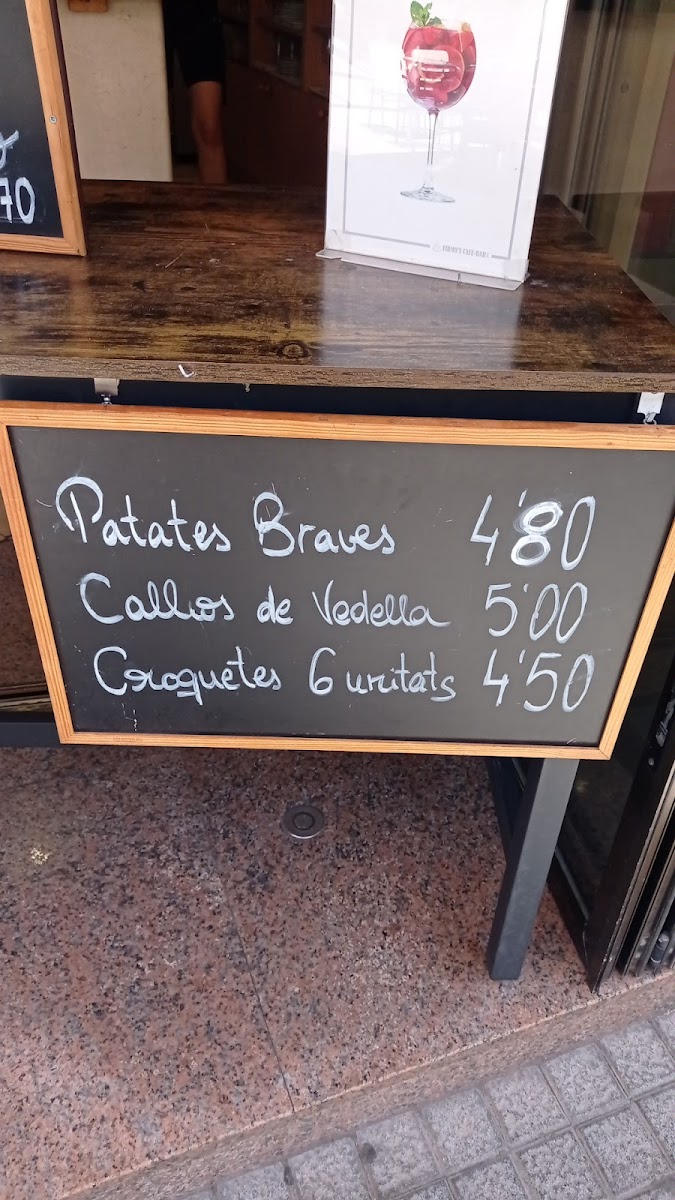 70
Patates Braves 4'80
Callos de Vedella 5'00
Croquetes 6 unitats 4'50